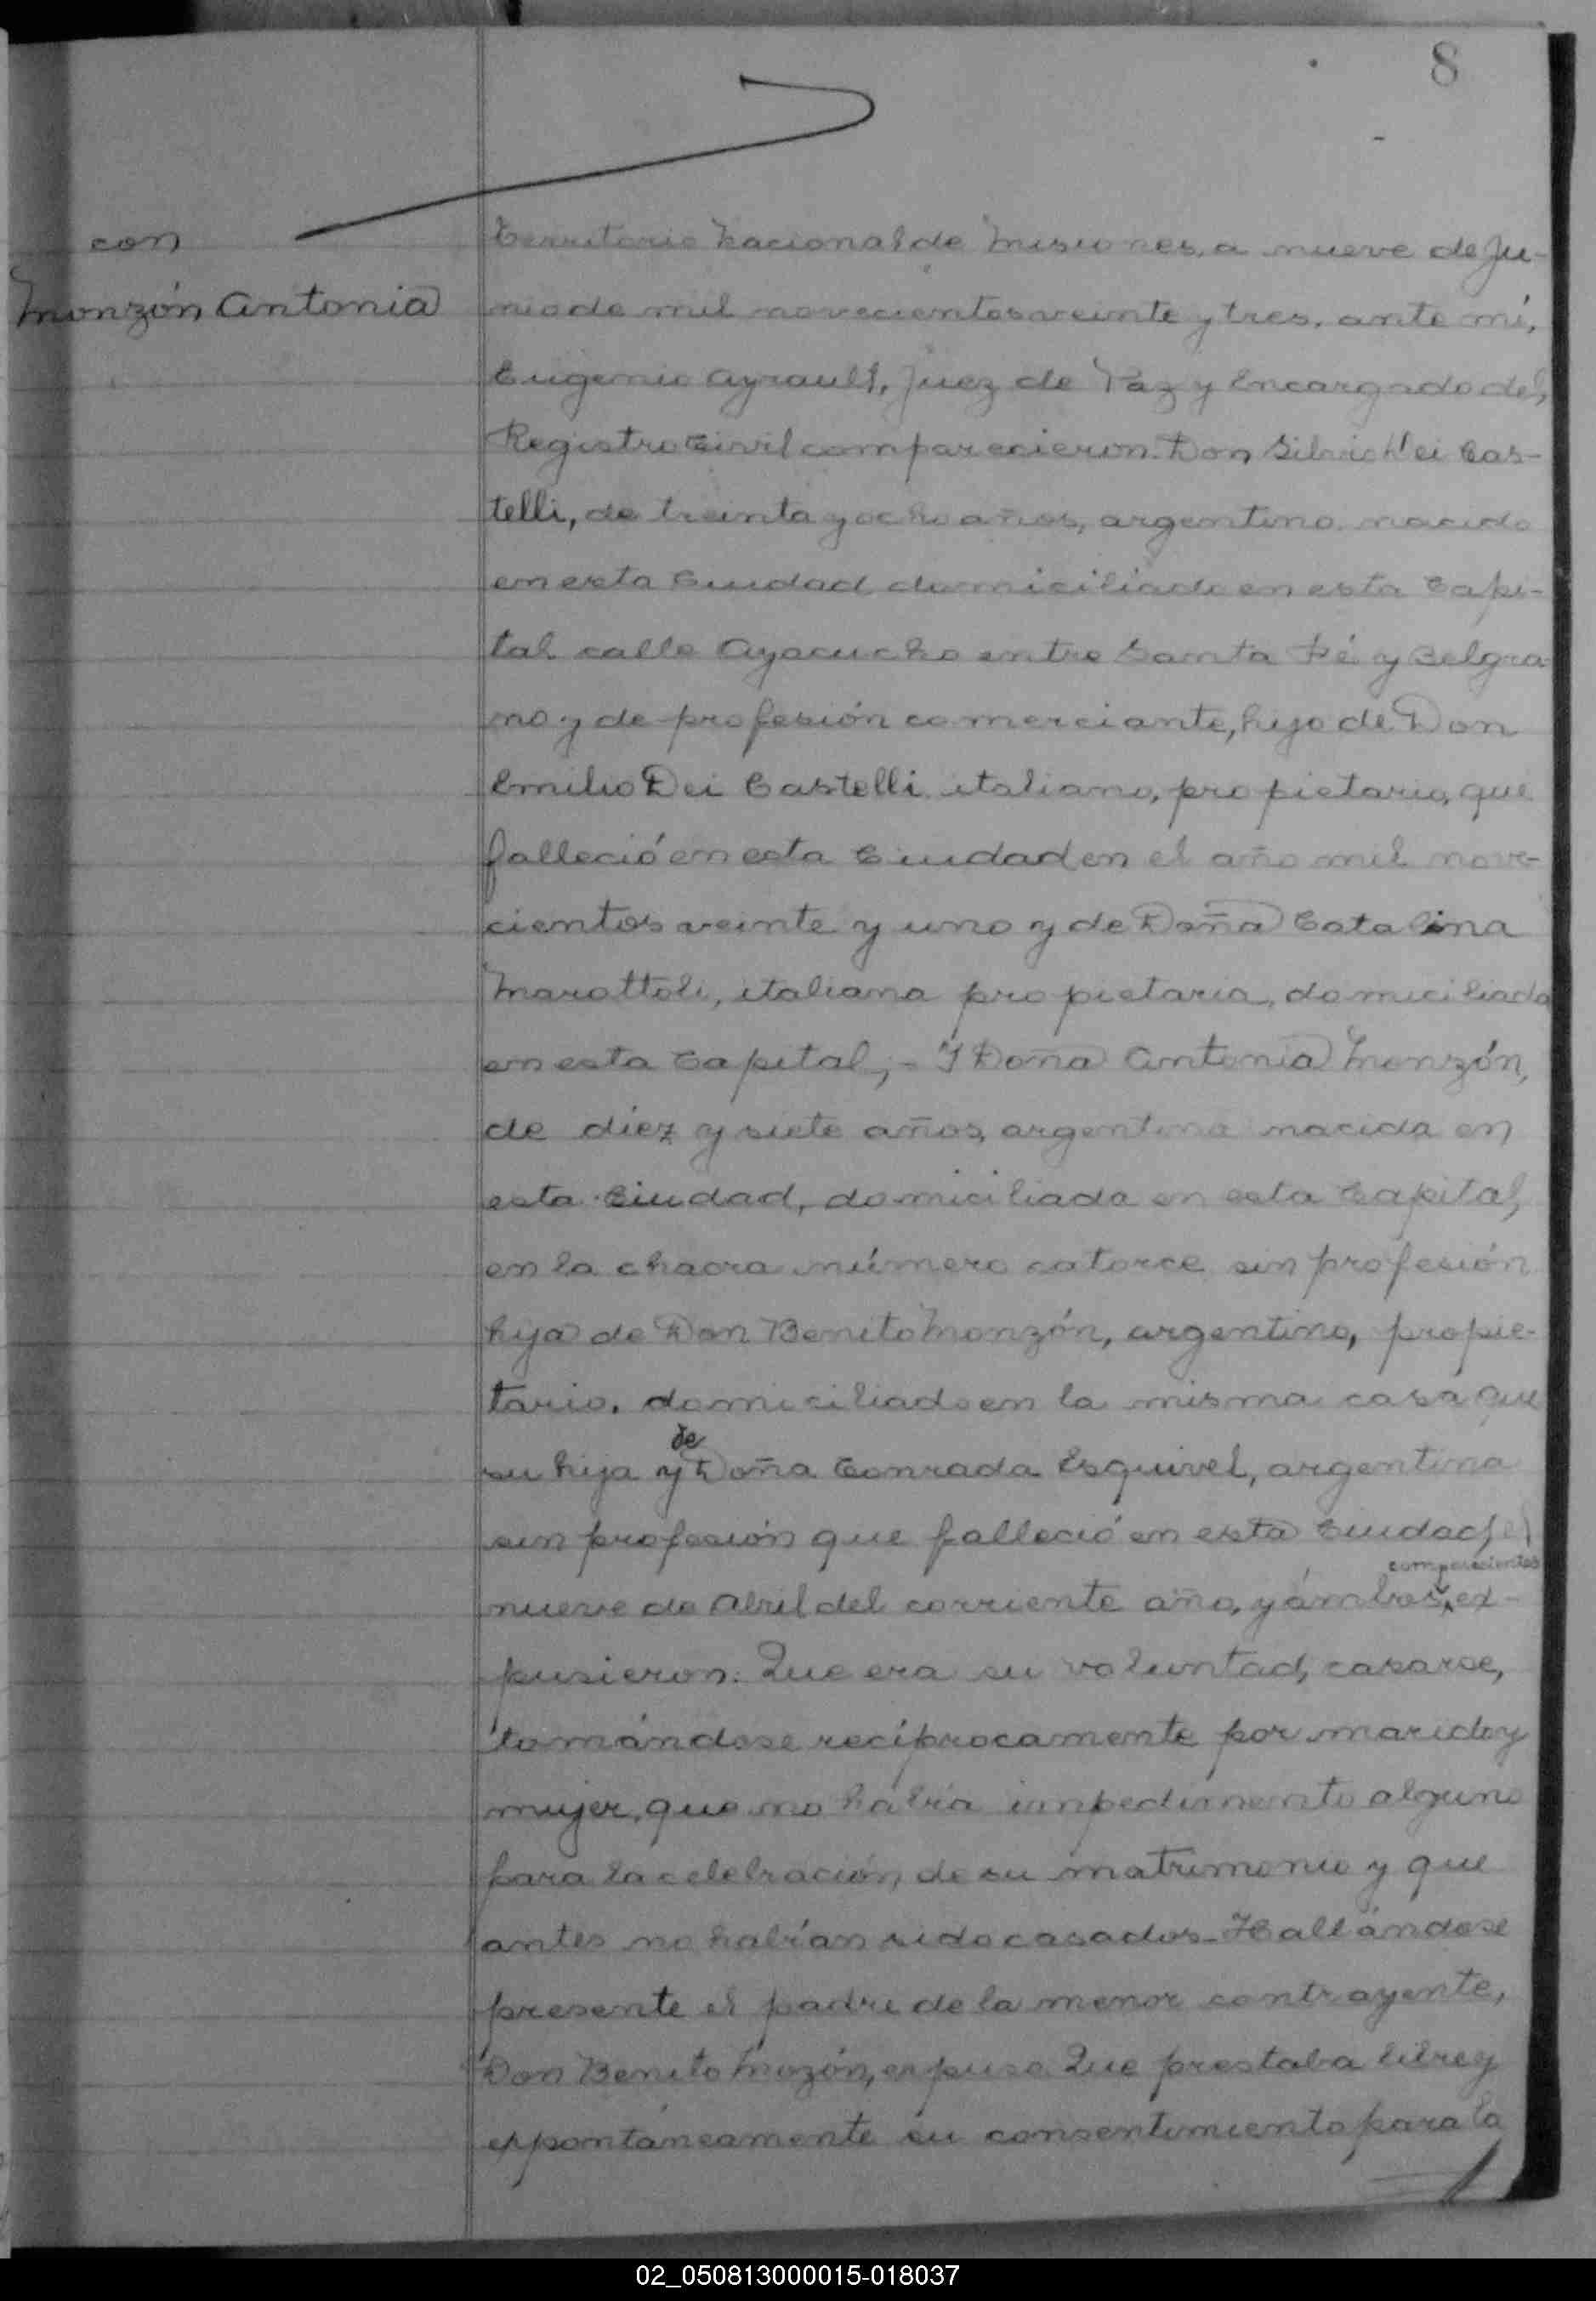 8
con
Monzón Antonia
Territorio Nacional de Misiones, a nueve de Ju-
nio de mil novecientos veinte y tres, ante mí,
Eugenio Ayrault, Juez de Paz y Encargado del
Registro Civil comparecieron: Don Silvio Dei Cas-
telli, de treinta y ocho años, argentino nacido
en esta Ciudad domiciliado en esta Capi-
tal calle Ayacucho entre Santa Fé y Belgra-
no y de profesión comerciante, hijo de Don
Emilio Dei Castelli italiano, propietario, que
falleció en esta Ciudad en el año mil nove-
cientos veinte y uno y de Doña Catalina
Marottoli, italiana propietaria, domiciliada
en esta Capital;- Y Doña Antonia Monzón,
de diez y siete años, argentina nacida en
esta Ciudad, domiciliada en esta Capital,
en la chacra número catorce sin profesión
hija de Don Benito Monzón, argentino, propie-
tario, domiciliado en la misma casa que
su hija y de Doña Conrada Esquivel, argentina
sin profesión que falleció en esta Ciudad, el
nueve de Abril del corriente año, y ámbos comparecientes ex-
pusieron: Que era su voluntad, casarse,
tomándose recíprocamente por marido y
mujer, que no había impedimento alguno
para la celebración, de su matrimonio y que
antes no habían sido casados- Hallándose
presente el padre de la menor contrayente,
Don Benito Mozón, expuso Que prestaba libre y
expontáneamente su consentimiento para la
02_050813000015-018037